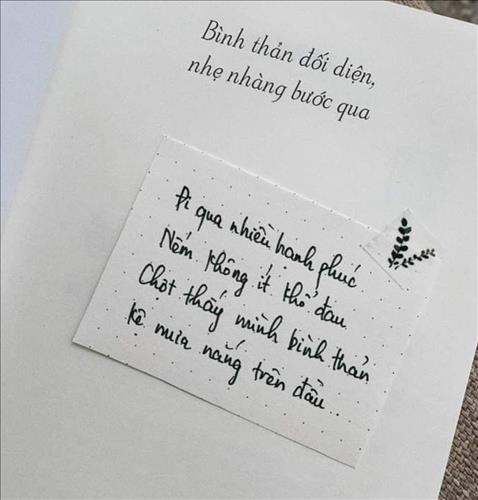 Bình thản đối diện,
nhẹ nhàng bước qua
Đi qua nhiều hạnh phúc
Nếm không ít khổ đau
Chợt thấy mình bình thản
Kệ mưa nắng trên đầu.